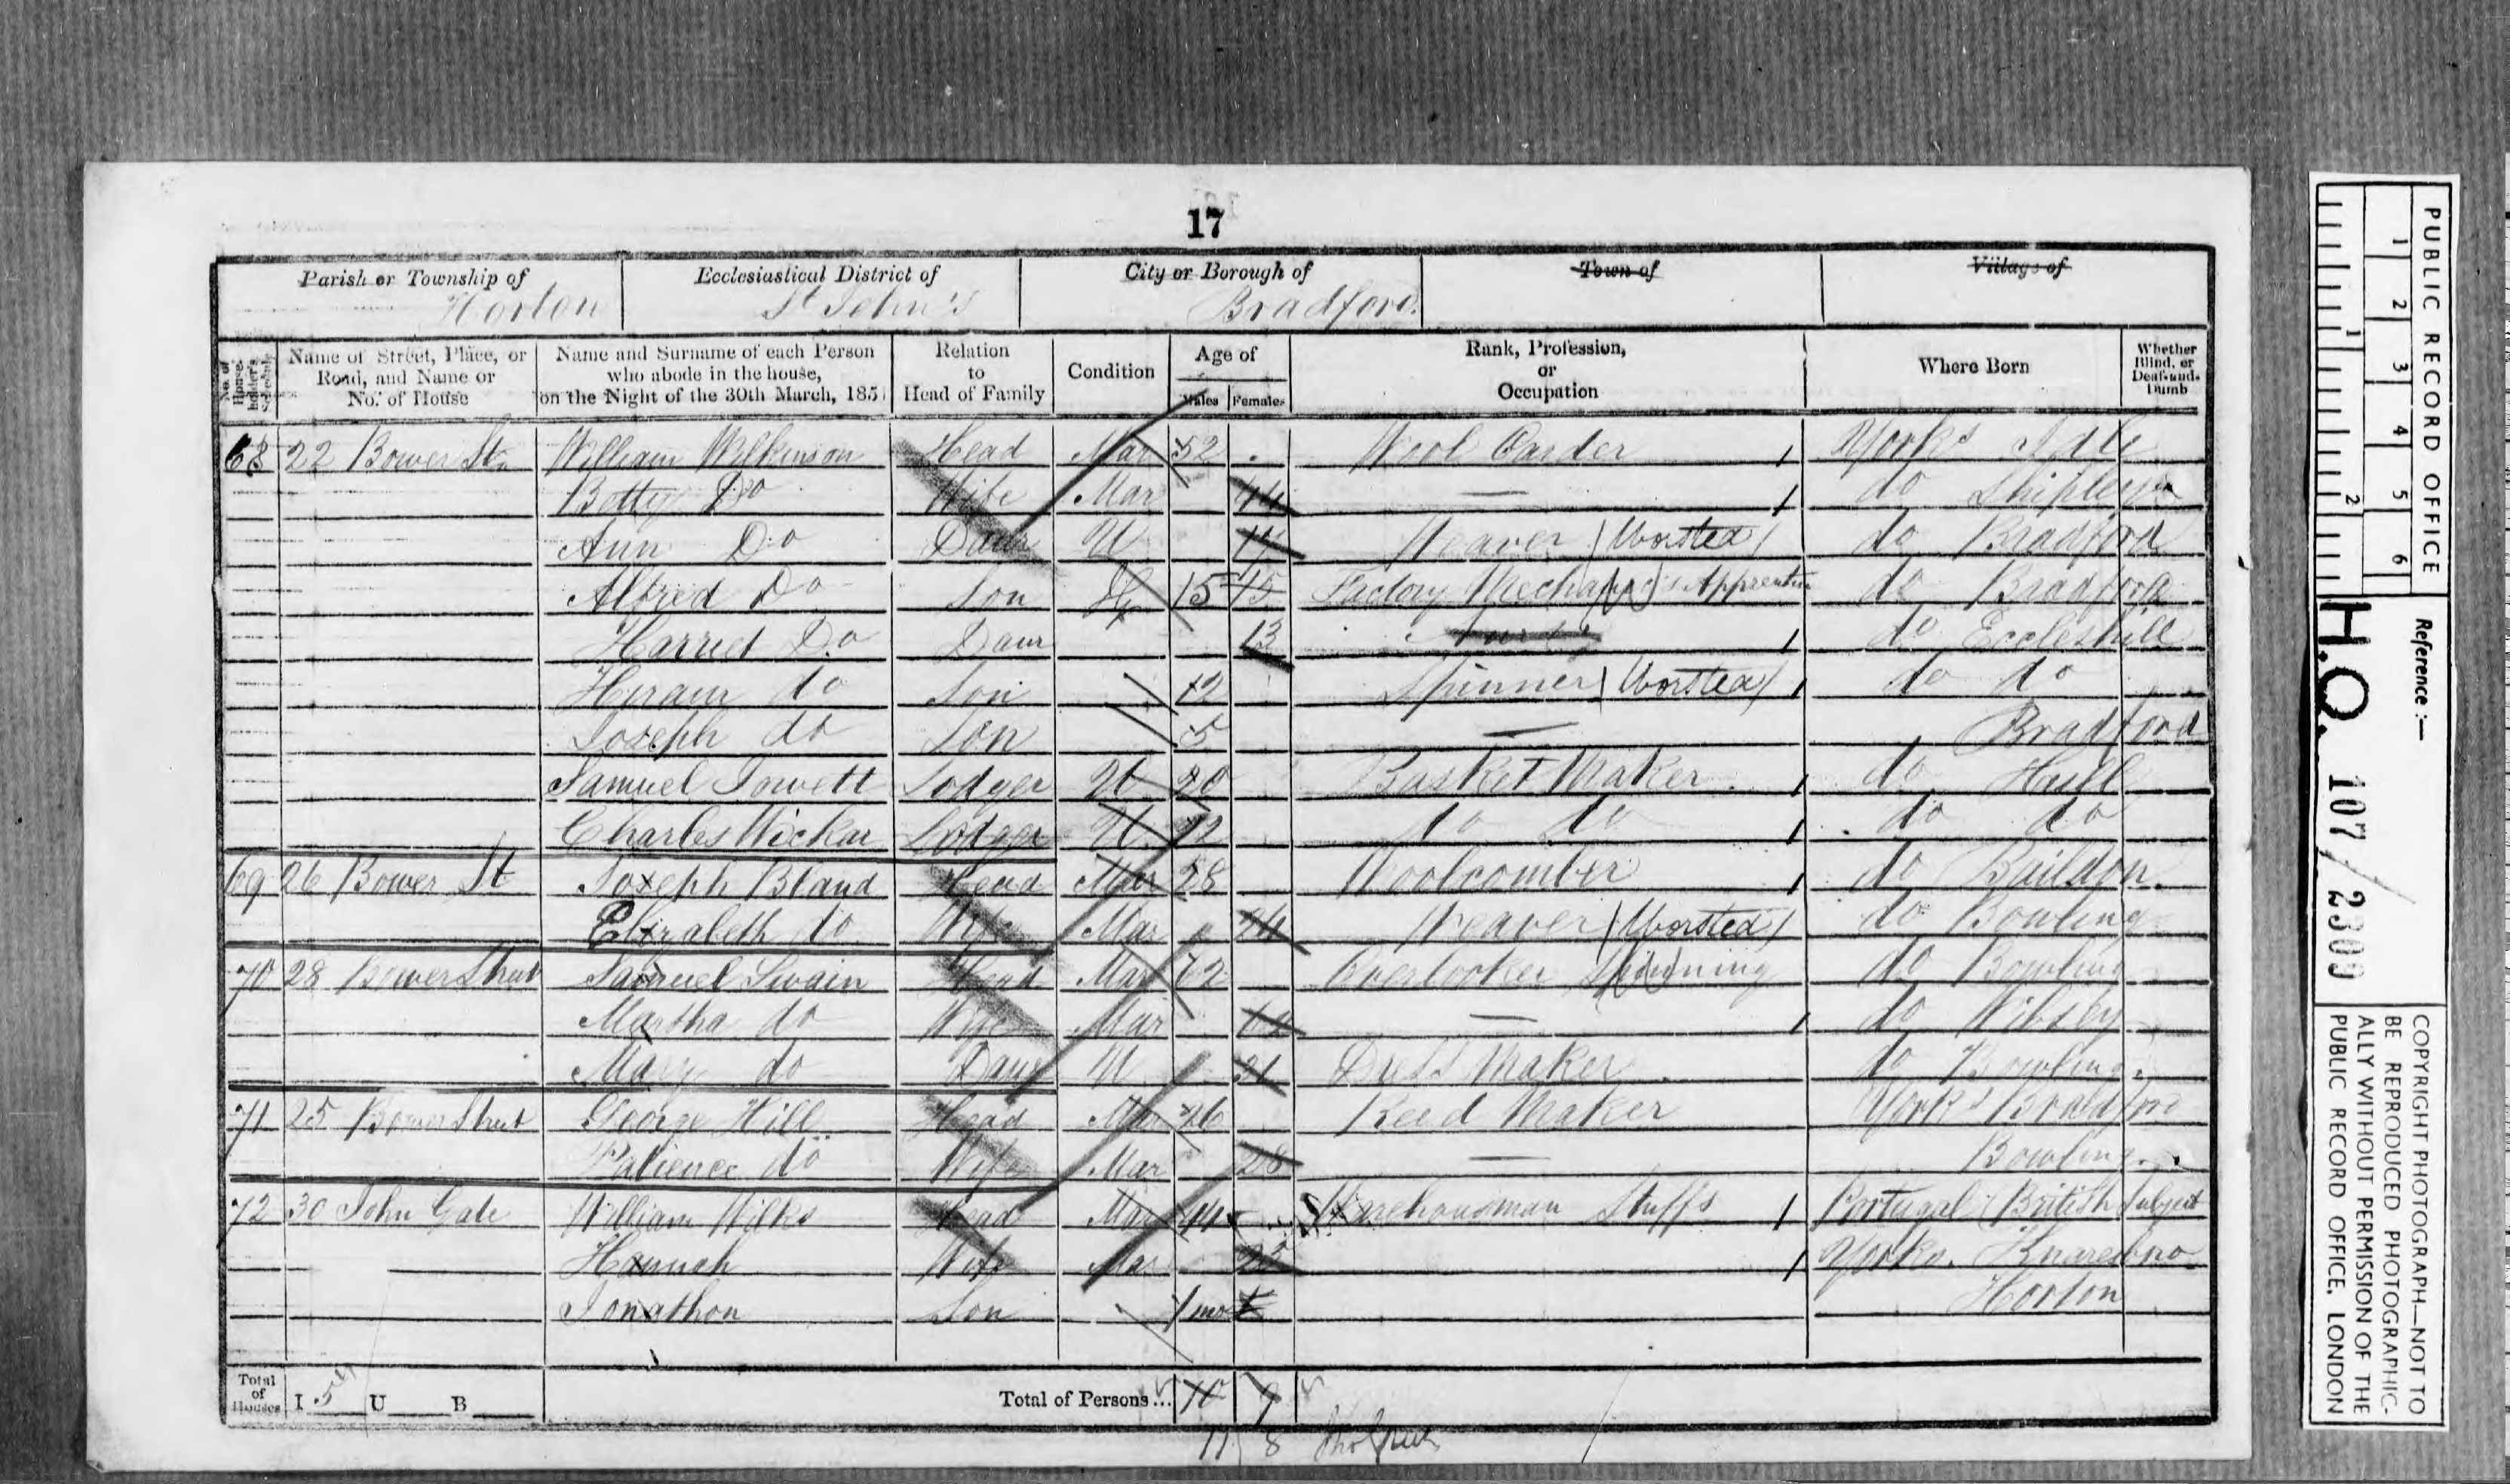 17
Parish or Township of Ecclesiastical District of City or Borough of Town of Village of
Horton St John's Bradford.
No. of House-holder's Schedule Name of Street, Place, or Road, and Name or No. of House Name and Surname of each Person who abode in the house, on the Night of the 30th March, 1851 Relation to Head of Family Condition Age of Males Females Rank, Profession, or Occupation Where Born Whether Blind, or Deaf-and-Dumb
68 22 Bower St. William Wilkinson Head Mar 52 Wool Carder Yorks Idle
Betty Do Wife Mar 44 — do Shipley
Ann Do Daur U 17 Weaver (Worsted) do Bradford
Alfred Do Son 15 15 Factory Mechanic's Apprentice do Bradford
Harriet Do Daur 13 do Eccleshill
Hiram do Son 12 Spinner (Worsted) do do
Joseph do Son 5 — Bradford
Samuel Jowett Lodger U 20 Basket Maker do Hull
Charles Wickar Lodger U do do do do
69 26 Bower St Joseph Bland Head Mar 28 Woolcomber do Baildon.
Elizabeth do Wife Mar 24 Weaver (Worsted) do Bowling
70 28 Bower Street Samuel Swain Head Mar 72 Overlooker Spinning do Bowling
Martha do Wife Mar — do Wibsey
Mary do Daur U 21 Dress Maker do Bowling.
71 25 Bower Street George Hill Head Mar 26 Reed Maker Yorks Bradford
Patience do Wife Mar 28 — Bowling.
72 30 John Gate William Wilks Head Mar 44 Warehousman Stuffs Portugal (British Subject
Hannah Wife Mar 25 Yorks. Knaresbro
Jonathon Son 1 mo Horton
Total of Houses I 5 U B Total of Persons... 10 9
11 8
PUBLIC RECORD OFFICE
1 2 3 4 5 6
1 2
Reference:—
H.O. 107/2309
COPYRIGHT PHOTOGRAPH—NOT TO
BE REPRODUCED PHOTOGRAPHIC-
ALLY WITHOUT PERMISSION OF THE
PUBLIC RECORD OFFICE, LONDON